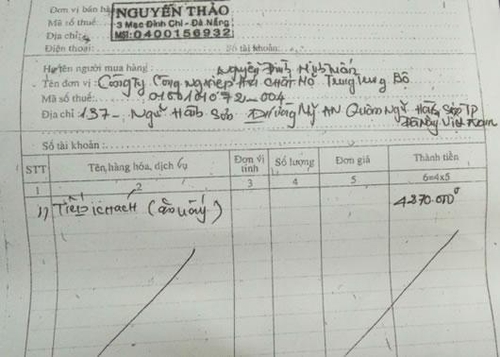 Đơn vị bán hàng
NGUYỄN THẢO
Mã số thuế:
3 Mạc Đỉnh Chi - Đà Nẵng
Địa chỉ:
MST: 0400156932
Điện thoại: Số tài khoản:
Họ tên người mua hàng:
Tên đơn vị: Công Ty Công nghiệp Hoá chất Mỏ Trung Trung Bộ
Mã số thuế: 0100101072-004
Địa chỉ 137- Ngũ Hành Sơn Phường Mỹ AN Quận Ngũ Hành Sơn TP
Đà Nẵng Việt Nam
Số tài khoản:
STT Tên hàng hóa, dịch vụ Đơn vị tính Số lượng Đơn giá Thành tiền
1 2 3 4 5 6=4x5
1) Tiếp KHÁCH (ăn uống) 4.270.000đ